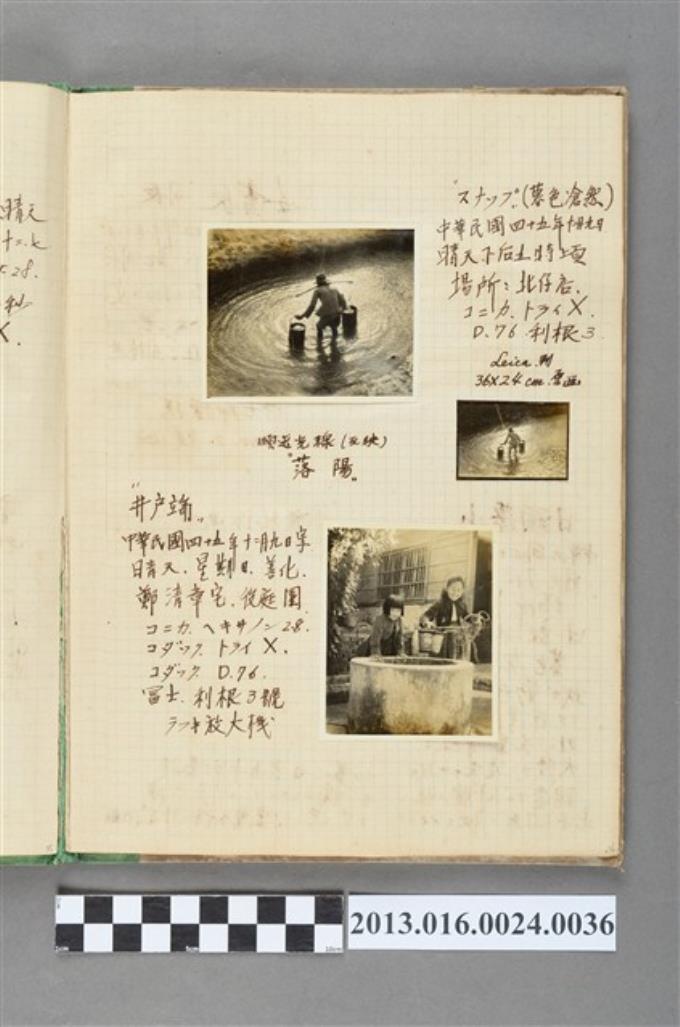 晴天
28.
X.
"スナップ"(暮色滄然)
中華民國四十五年十月九日
晴天下后五時頃
場所:北仔店.
コニカ.トライX.
D.76 利根3.
Leica.判
36X24 cm.
順逆光線(反映)
"落陽"
"井戸端"
中華民國四十五年十二月九日写
晴天.星期日.善化.
鄭清章宅.後庭園.
コニカ.ヘキサノン28.
コダック トライX.
コダック D.76.
冨士.利根3號
ラッキ放大機
2013.016.0024.0036